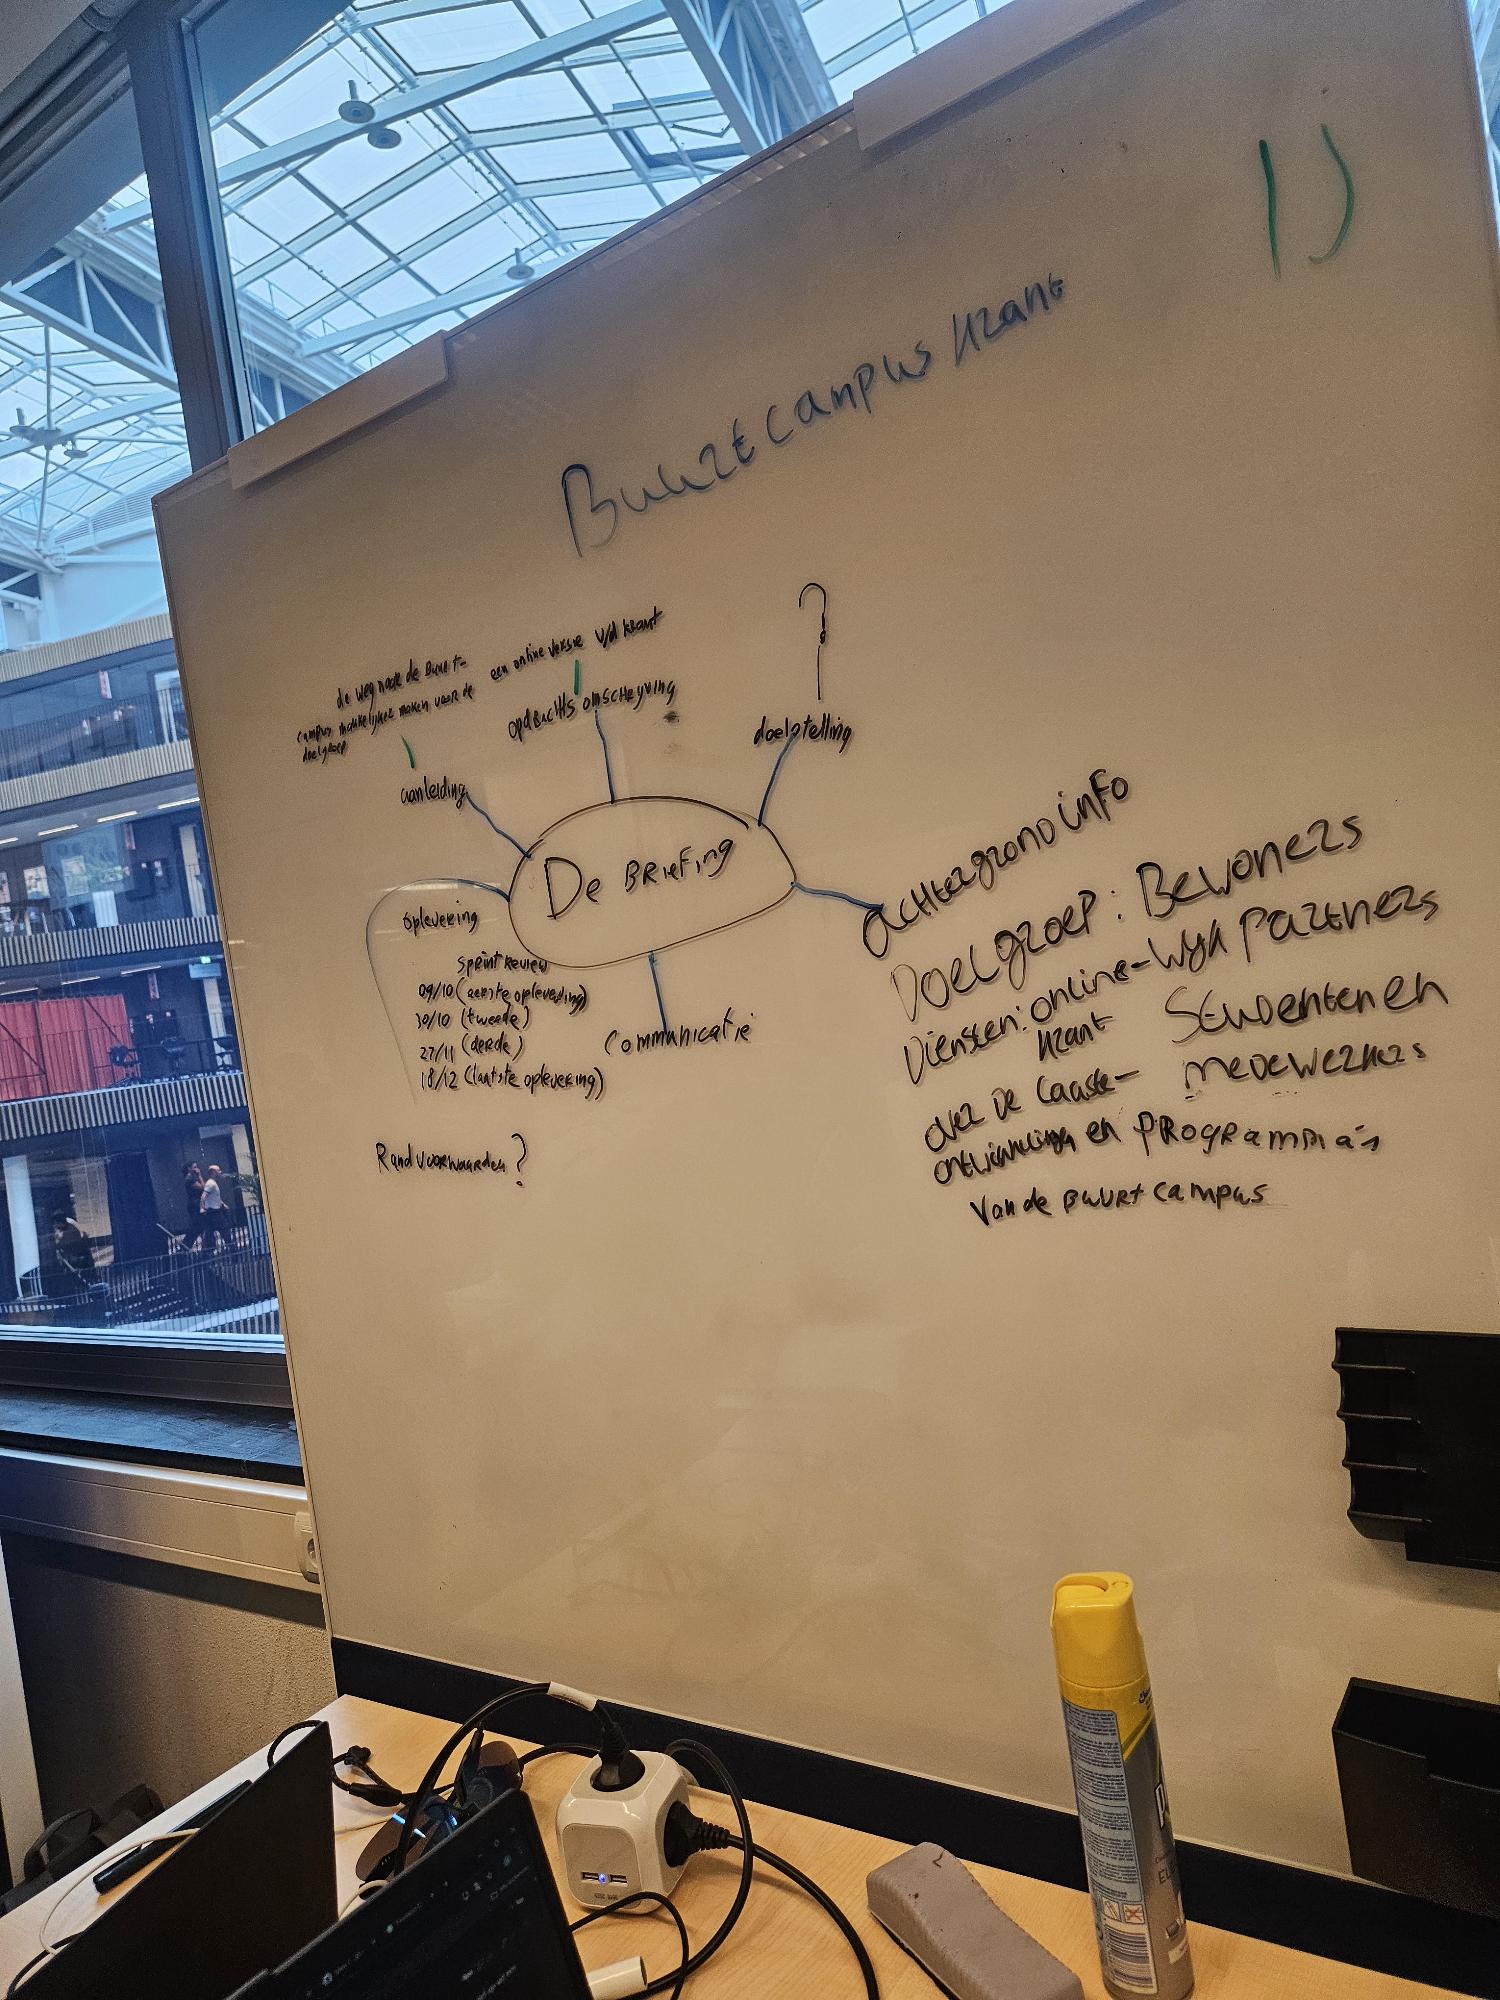 1)
Buurtcampus krant
?
een online versie v/d krant
de weg naar de Buurt-
campus makkelijker maken voor de
doelgroep
opdrachts omschrijving
doelstelling
aanleiding
De BRieFing
achtergrond info
Doelgroep: Bewoners
Wijk Partners
Studenten en
medewerkers
Diensten: online-
krant
over de laaste-
ontwikkelingen en PROGRAMMA's
Van de Buurt campus
oplevering
Sprint Review
09/10 (eerste oplevering)
30/10 (tweede)
27/11 (derde)
18/12 (laatste oplevering)
Communicatie
Randvoorwaarden?